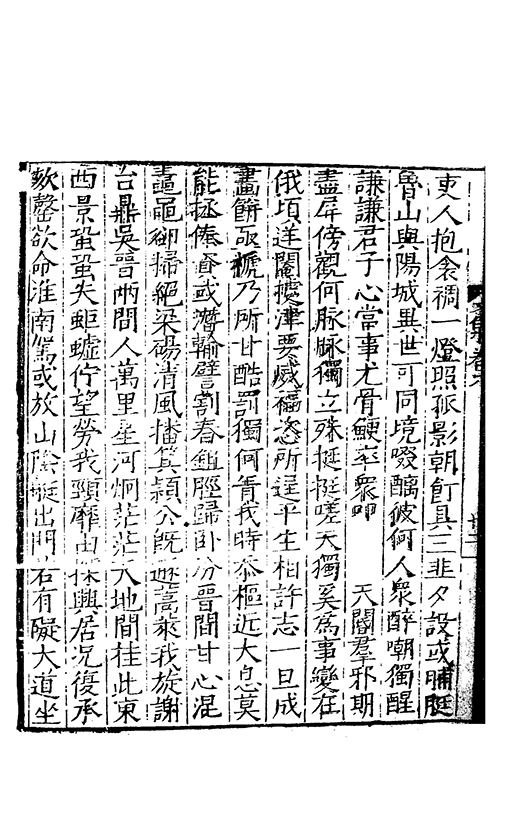 吏人抱衾裯一燈照孤影朝飣具三韭夕設或脯脡
魯山與陽城異世可同境啜醨彼何人衆醉嘲獨醒
謙謙君子心當事尤骨鯁率衆呷　天閽羣邪期
盡屏傍觀何脉脉獨立殊挺挺嗟天獨奚爲事變在
俄頃逆閹擾津要威福恣所逞平生相許志一旦成
畫餅亟褫乃所甘酷罰獨何眚我時忝樞近大息莫
能拯俸資或潛輸譬割春龜脛歸卧汾晉間甘心混
黽卻掃絕梁碭清風播箕潁公旣遊蒿萊我旋謝
台鼎吳晉兩間人萬里坐河炯茫茫大地間挂此東
西景蛩蛩失蚷蛩佇望勞我頸靡由採興居况復承
欬謦欲命淮南駕或放山陰艇出門右有礙大道坐